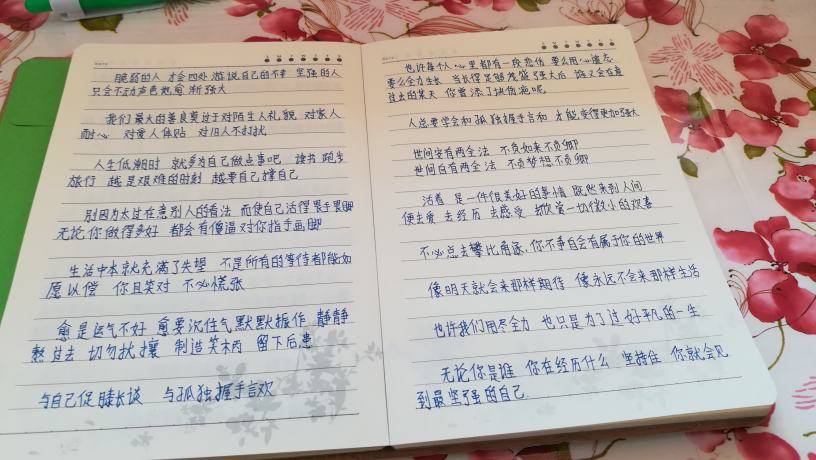 脆弱的人 才会四处游说自己的不幸 坚强的人
只会不动声色地愈渐强大
我们最大的善良莫过于对陌生人礼貌 对家人
耐心 对爱人体贴 对旧人不打扰
人生低潮时 就多为自己做点事吧 读书 跑步
旅行 越是艰难的时刻 越要自己撑自己
别因为太过在意别人的看法 而使自己活得畏手畏脚
无论你做得多好 都会有傻逼对你指手画脚
生活中本就充满了失望 不是所有的等待都能如
愿以偿 你且笑对 不必慌张
愈是运气不好 愈要沉住气 默默振作 静静
熬过去 切勿扰攘 制造笑柄 留下后患
与自己促膝长谈 与孤独握手言欢
也许每个人心里都有一段悲伤 要么用心遗忘
要么全力生长 当长得足够茂盛强大后 谁又会在意
过去的某天 你曾添了块伤疤呢
人总要学会和孤独握手言和 才能变得更加强大
世间安有两全法 不负如来不负卿
世间自有两全法 不负梦想不负卿
活着 是一件很美好的事情 既然来到人间
便去爱 去经历 去感受 却欣赏一切微小的欢喜
不必总去攀比角逐 你不争自会有属于你的世界
像明天就会来那样期待 像永远不会来那样生活
也许我们用尽全力 也只是为了过好平凡的一生
无论你是谁 你在经历什么 坚持住 你就会见
到最坚强的自己